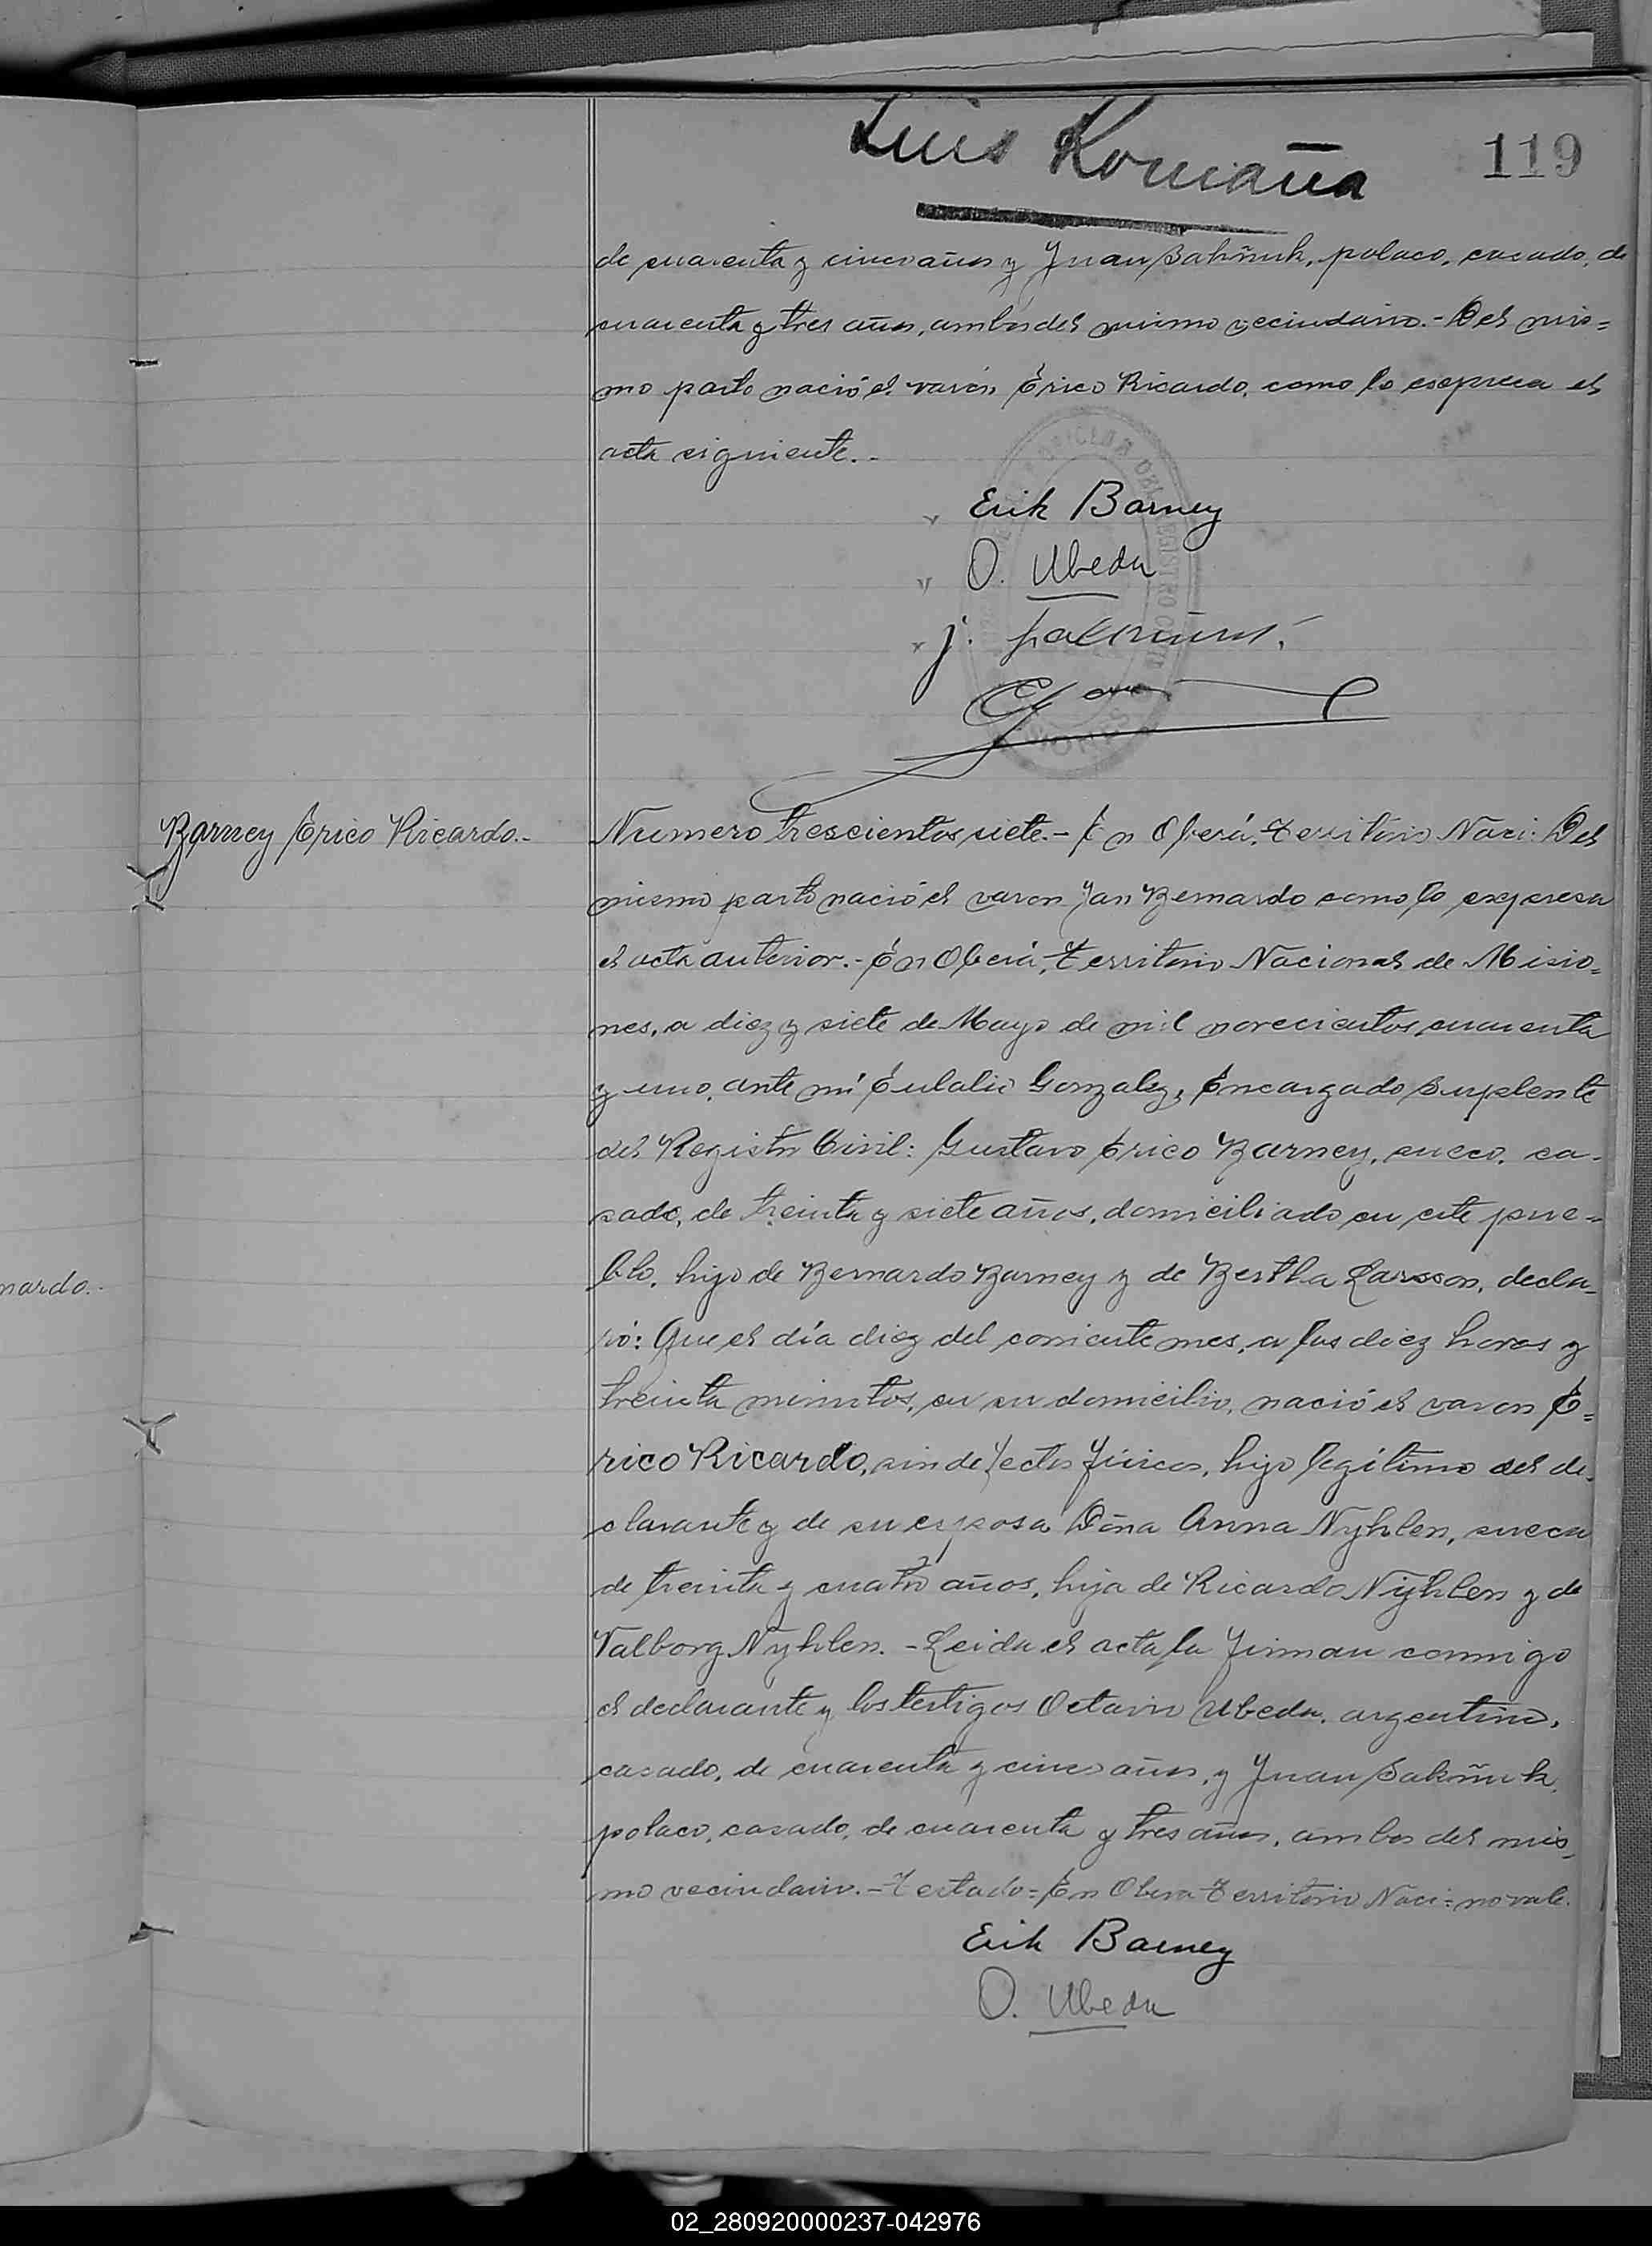 Luis Romaña
119
de cuarenta y cinco años y Juan Sakñuk, polaco, casado, de
cuarenta y tres años, ambos del mismo vecindario.- Del mis=
mo parto nació el varón Erico Ricardo, como lo expresa el
acta siguiente.-
Erik Barney
O. Ubeda
J.
Barney Erico Ricardo.-
Numero trescientos siete.- En Oberá, Territorio Naci: Del
mismo parto nació el varon Jan Bernardo como lo expresa
el acta anterior.- En Oberá, Territorio Nacional de Misio=
nes, a diez y siete de Mayo de mil novecientos cuarenta
y uno, ante mí Eulalio Gonzalez, Encargado Suplente
del Registro Civil: Gustavo Erico Barney, sueco, ca-
sado, de treinta y siete años, domiciliado en este pue-
blo, hijo de Bernardo Barney y de Bertha Larsson, decla-
ró: Que el día diez del corriente mes, a las diez horas y
treinta minutos, en su domicilio, nació el varon E=
rico Ricardo, sin defectos físicos, hijo legítimo del de-
clarante y de su esposa Doña Anna Nyhlen, sueca
de treinta y cuatro años, hija de Ricardo Nyhlen y de
Valborg Nyhlen. - Leida el acta la firman conmigo
el declarante y los testigos Octavio Ubeda, argentino,
casado, de cuarenta y cinco años, y Juan Sakñuk,
polaco, casado, de cuarenta y tres años, ambos del mis-
mo vecindario.- Testado= En Obera Territorio Naci= no vale.
Erik Barney
O. Ubeda
nardo.-
02_280920000237-042976